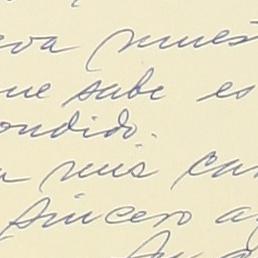 eva mues
que sabe es
ondido.
mis ca
sincero a